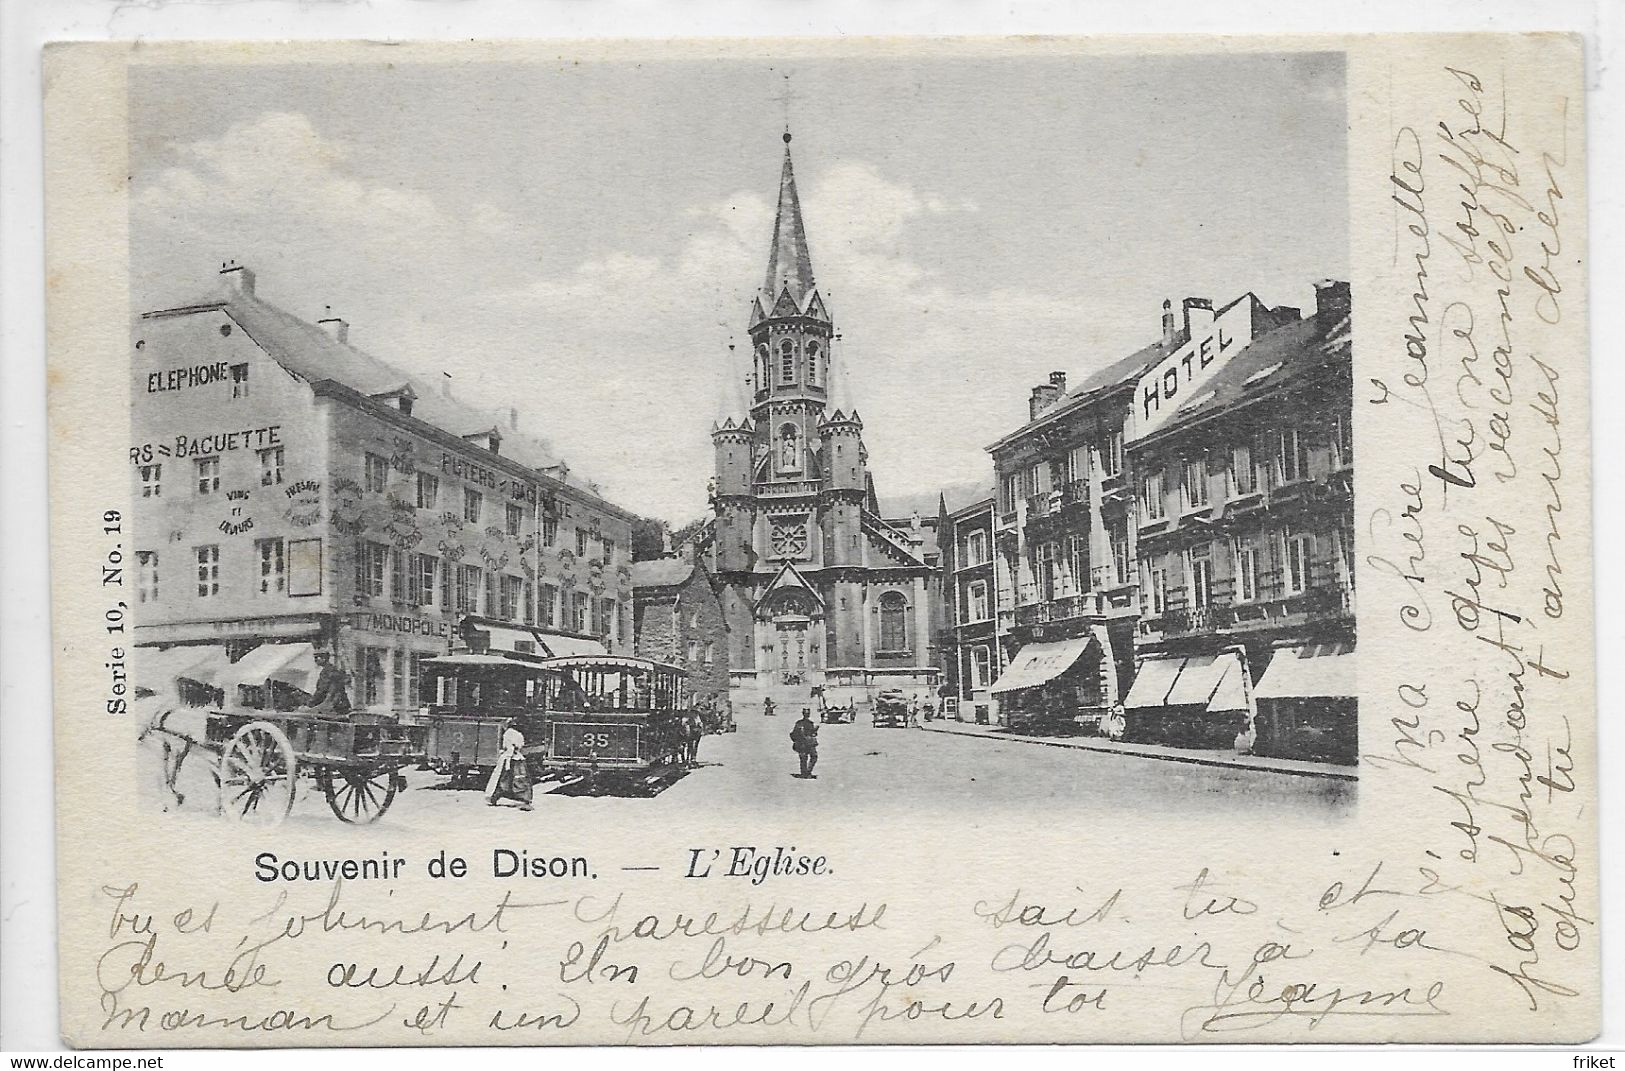 ELEPHONE
RS = BAGUETTE
VINS
ET
PUTERS = BAGUETTE
MONOPOLE
HOTEL
3
35
Serie 10, No. 19
Souvenir de Dison. — L'Eglise.
Ma chère Jeannette
J'espère que tu ne souffres
pas pendant les vacances et
que tu t'amuses bien
Tu es joliment paresseuse, sais-tu et
Renée aussi. Un bon gros baiser à ta
Maman et un pareil pour toi Jeanne
Delcampe.net
friket